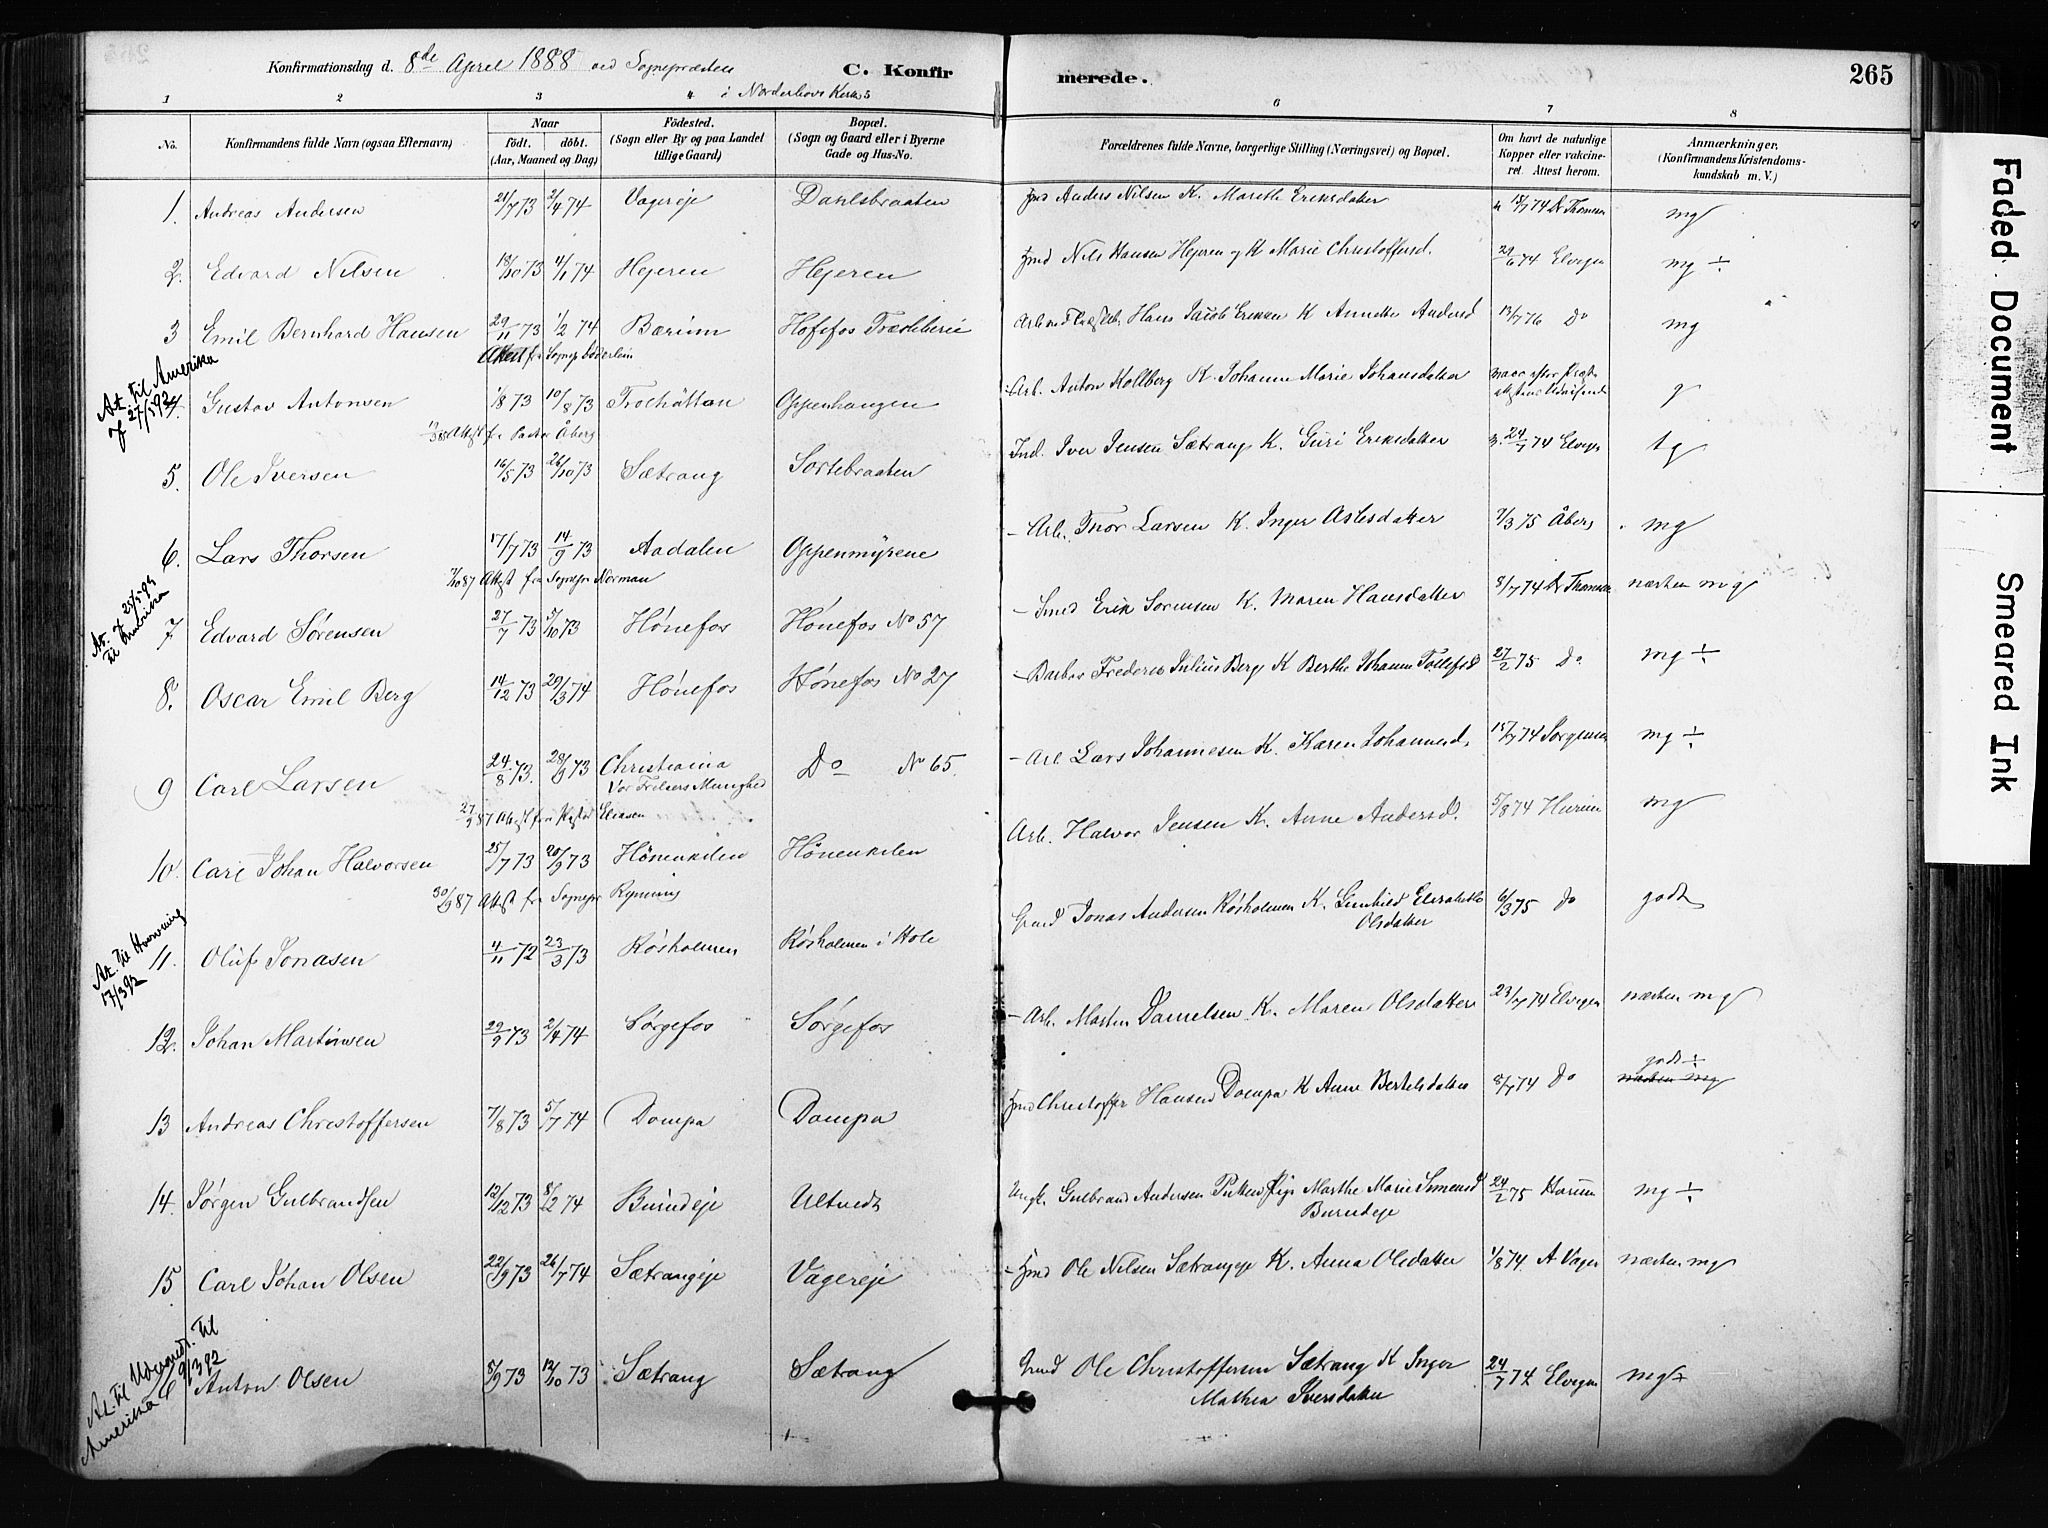 Konfirmationsdag d. 8de April 1888 ved Sognepresten C. Konfir merede. 265
i Norderhovs Kirke
1 2 3 4 5 6 7 8
No. Konfirmandens fulde Navn (ogsaa Efternavn) Naar födt. döbt. (Aar, Maaned og Dag) Födested. (Sogn eller By og paa Landet tillige Gaard) Bopæl. (Sogn og Gaard eller i Byerne Gade og Hus-No. Forældrenes fulde Navne, borgerlige Stilling (Næringsvei) og Bopæl. Om havt de naturlige Kopper eller vakcineret. Attest herom. Anmærkninger. (Konfirmandens Kristendomskundskab m. V.)
1. Andreas Andersen 21/7 73 2/4 74 Vagereje Dahlsbraaten Anders Nilsen K. Marethe Eriksdatter 18/7 74 Dr Thomsen mg
2. Edvard Nilsen 18/10 73 4/1 74 Hejeren Hejeren Hmd Nils Hansen Hejeren og K Marie Christoffersd. 29/6 74 Elvegen mg ÷
3 Emil Bernhard Hansen 29/11 73 1/2 74 Bærum Hofsfos Træsliberie Hans Jacob Eriksen K Annette Andersd 13/7 76 Do mg
Attest fra Sognep. Söderlein
At. til Amerika 27/5 92
4. Gustav Antonsen 1/8 73 10/8 73 Trolhättan Oppenhaugen Arb. Anton Kollberg K. Johanne Marie Johansdatter g
Attest fra Pastor Åberg
5. Ole Iversen 16/5 73 26/10 73 Sætrang Sortebraaten Ind. Iver Jensen Sætrang K. Guri Eriksdatter 24/7 74 Elvegen tg
6. Lars Thorsen 17/7 73 14/9 73 Aadalen Oppenmyrene Arb. Thor Larsen K. Inger Aslesdatter 7/3 75 Åberg mg
7/10 87 Attest fra Sognepr Norman
At. 25/5 93 til Amerika
7. Edvard Sørensen 27/7 73 5/10 73 Hónefos Hónefos No 57 Smed Erik Sørensen K. Maren Hansdatter 8/7 74 Dr Thomsen næsten mg
8. Oscar Emil Berg 14/12 73 29/3 74 Hónefos Hónefos No 27 Frederik Julius Berg K Berthe Johanne Tollefsd 27/2 75 Do mg ÷
9 Carl Larsen 24/8 73. 28/9 73 Christiania Vor Frelsers Menighed Do No 65. Arb Lars Johannesen K. Karen Johannesd. 15/7 74 Sørgensen mg ÷
87 Attest fra Pastor Eliasen
10. Carl Johan Halvorsen 25/7 73 20/9 73 Hönenkilen Hönenkilen Arb. Halvor Jensen K. Anne Andersd. 5/8 74 Hurum mg
30/9 87 Attest fra Sognepr Rynning
At. til 17/3 92
11. Oluf Jonasen 4/11 72 23/3 73 Røsholmen Røsholmen i Hole Jonas Andersen Røsholmen K. Gunhild Elisabeth Olsdatter 6/3 75 Do godt
12. Johan Martinsen 29/9 73 2/4 74 Sørgefos Sørgefos Arb. Martin Danielsen K. Maren Olsdatter 23/7 74 Elvegen næsten mg
13 Andreas Christoffersen 7/8 73 5/7 74 Dompa Dompa Hmd Christoffer Hansen Dompa K Anne Bertelsdatter 8/7 74 Do godt ÷ næsten mg
14. Jørgen Gulbrandsen 12/12 73 8/2 74 Burudeje Ultvedt Ungk. Gulbrand Andersen Pige Marthe Marie Simensd Burudeje 24/2 75 Hurum mg ÷
15 Carl Johan Olsen 22/9 73 26/7 74 Sætrangeje Vagereje Hmd Ole Nilsen Sætrangeje K. Anna Olsdatter 1/8 74 A Vager næsten mg
At. til Udvandr. til Amerika 9/3 92
Anton Olsen 5/9 73 12/10 73 Sætrang Sætrang Gmd Ole Christoffersen Sætrang K Inger Mathea Iversdatter 24/7 74 Elvegen mg÷
Faded Document
Smeared Ink